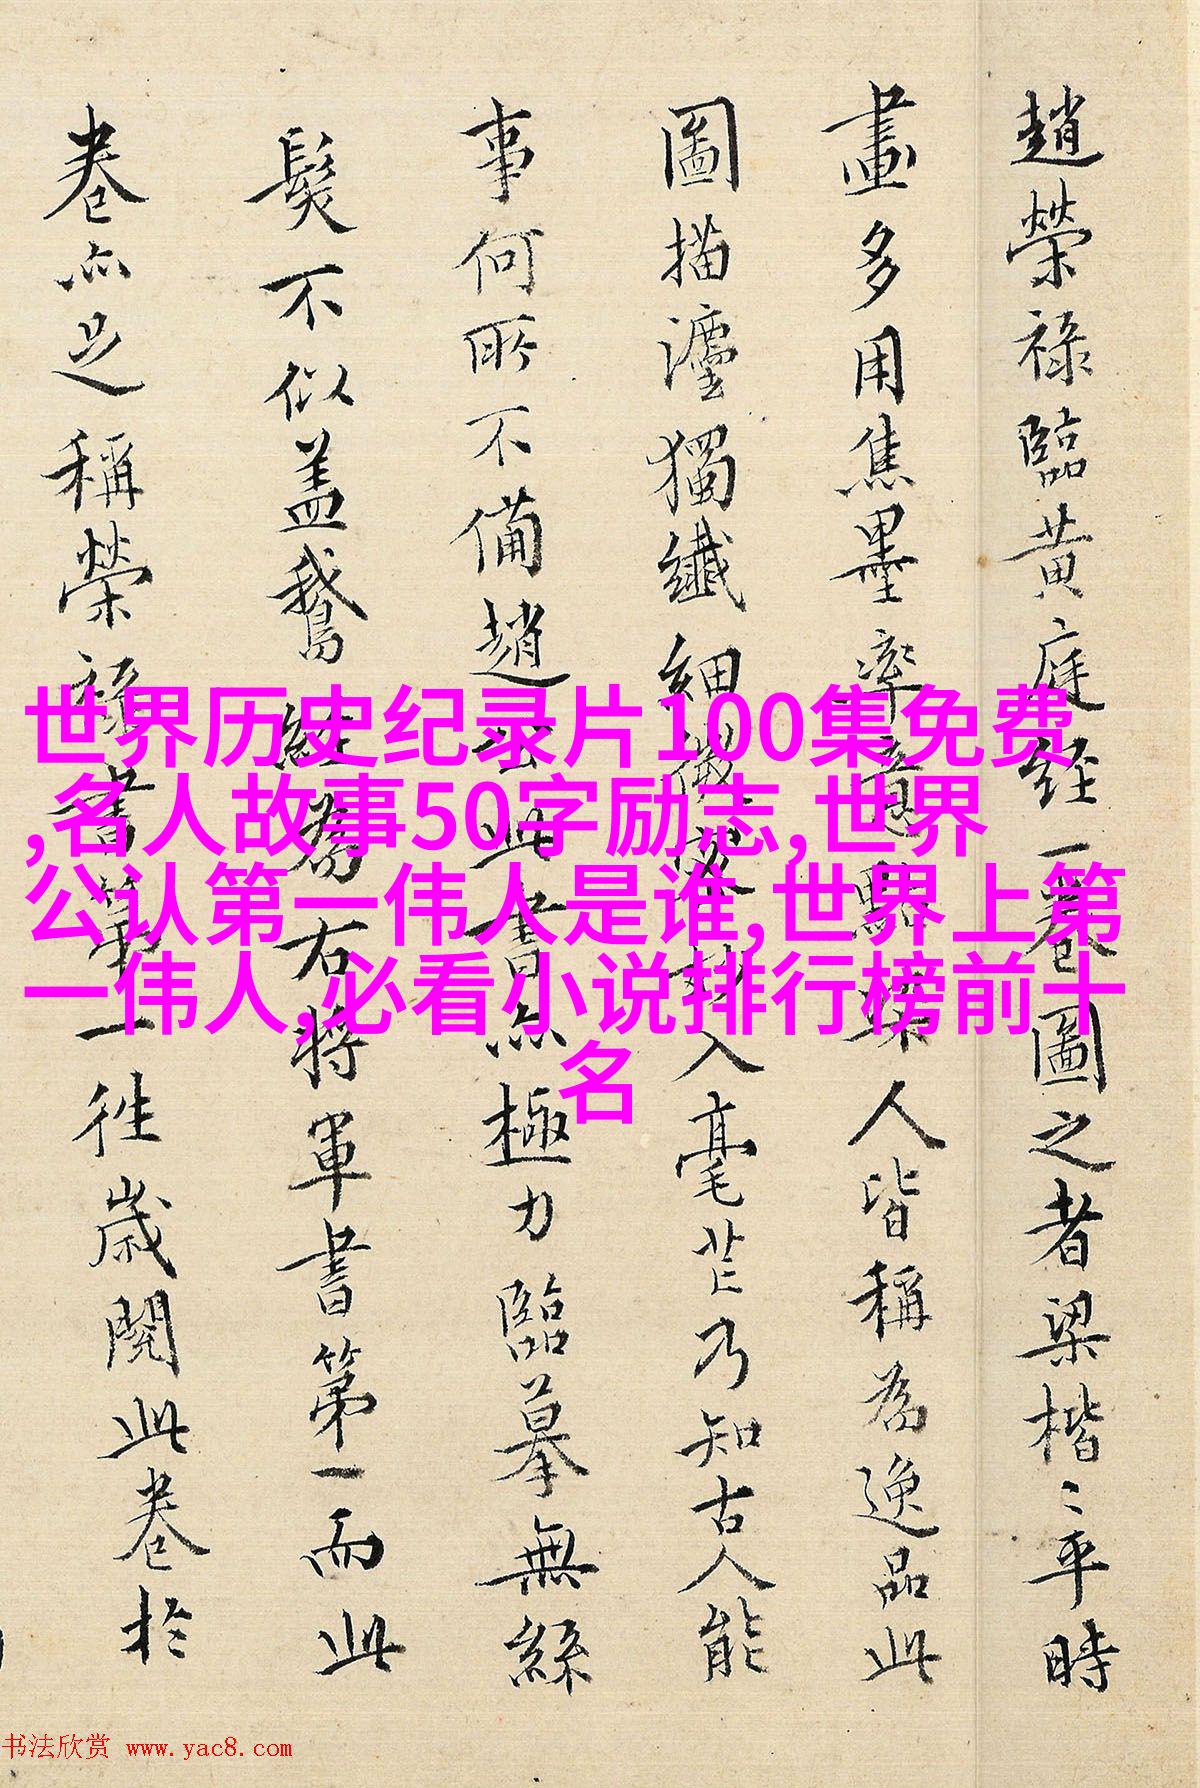 趙榮祿臨黄庭經一卷圖之者梁楷〻平時
畫多用焦墨率意點染人皆稱為逸品此
圖描灋獨纖細微密妙入毫芒乃知古人能
事何所不備趙公此書亦極力臨摹無絲
髮不似盖鵞經為右將軍書第一而此
卷亦足稱榮祿書第一往歲閱此卷於
世界历史纪录片100集免费
,名人故事50字励志,世界
公认第一伟人是谁,世界上第
一伟人,必看小说排行榜前十
名
书法欣赏 www.yac8.com